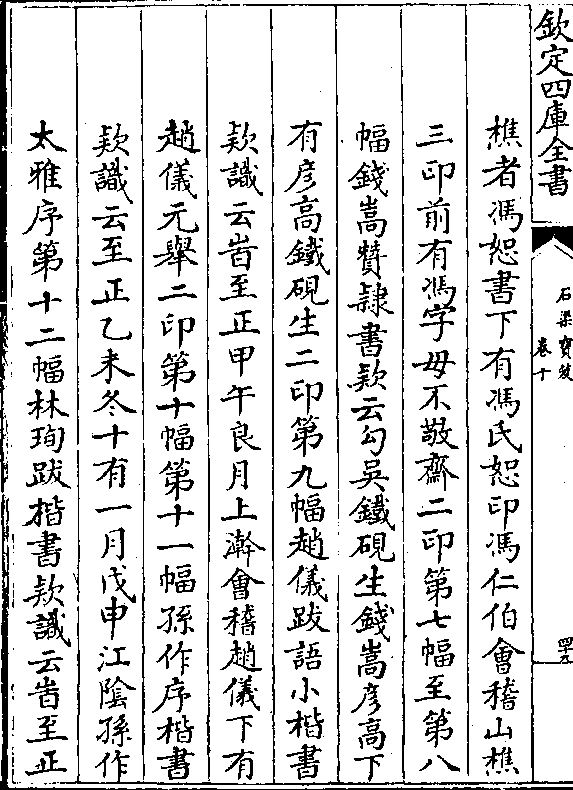 欽定四庫全書
石渠寶笈
卷十
樵者馮恕書下有馮氏恕印馮仁伯會稽山樵
三印前有馮字毋不敬齋二印第七幅至第八
幅錢嵩贊隷書欵云勾吳鐵硯生錢嵩彦高下
有彦高鐵硯生二印第九幅趙儀跋語小楷書
欵識云旹至正甲午良月上澣會稽趙儀下有
趙儀元舉二印第十幅第十一幅孫作序楷書
欵識云至正乙未冬十有一月戊申江陰孫作
太雅序第十二幅林珣跋楷書欵識云旹至正